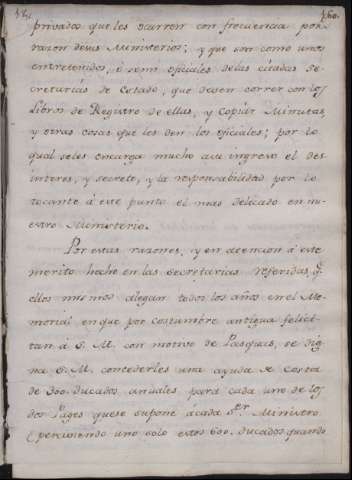 privados que les ocurren con frecuencia por
razon de sus Ministerios; y que son como unos
entretenidos, ò semi oficiales de las citadas Se-
cretarias de Estado, que deven correr con los
Libros de Registro de ellas, y Copiar Minutas,
y otras cosas que les den los oficiales; por lo
qual se les encarga mucho a su ingreso el des-
interes, y secreto, y la responsabilidad por lo
tocante á este punto el mas delicado en nu-
estro Ministerio.
Por estas razones, y en atencion á este
merito hecho en las Secretarias referidas, q.
ellos mismos alegan todos los años en el Me-
morial en que por costumbre antigua felici-
tan á S. M. con motivo de Pasquas, se dig-
na S. M. concederles una ayuda de Costa
de 300. Ducados anuales para cada uno de los
dos Pages que se supone à cada S.er Ministro
(percibiendo uno solo estos 600. Ducados quando